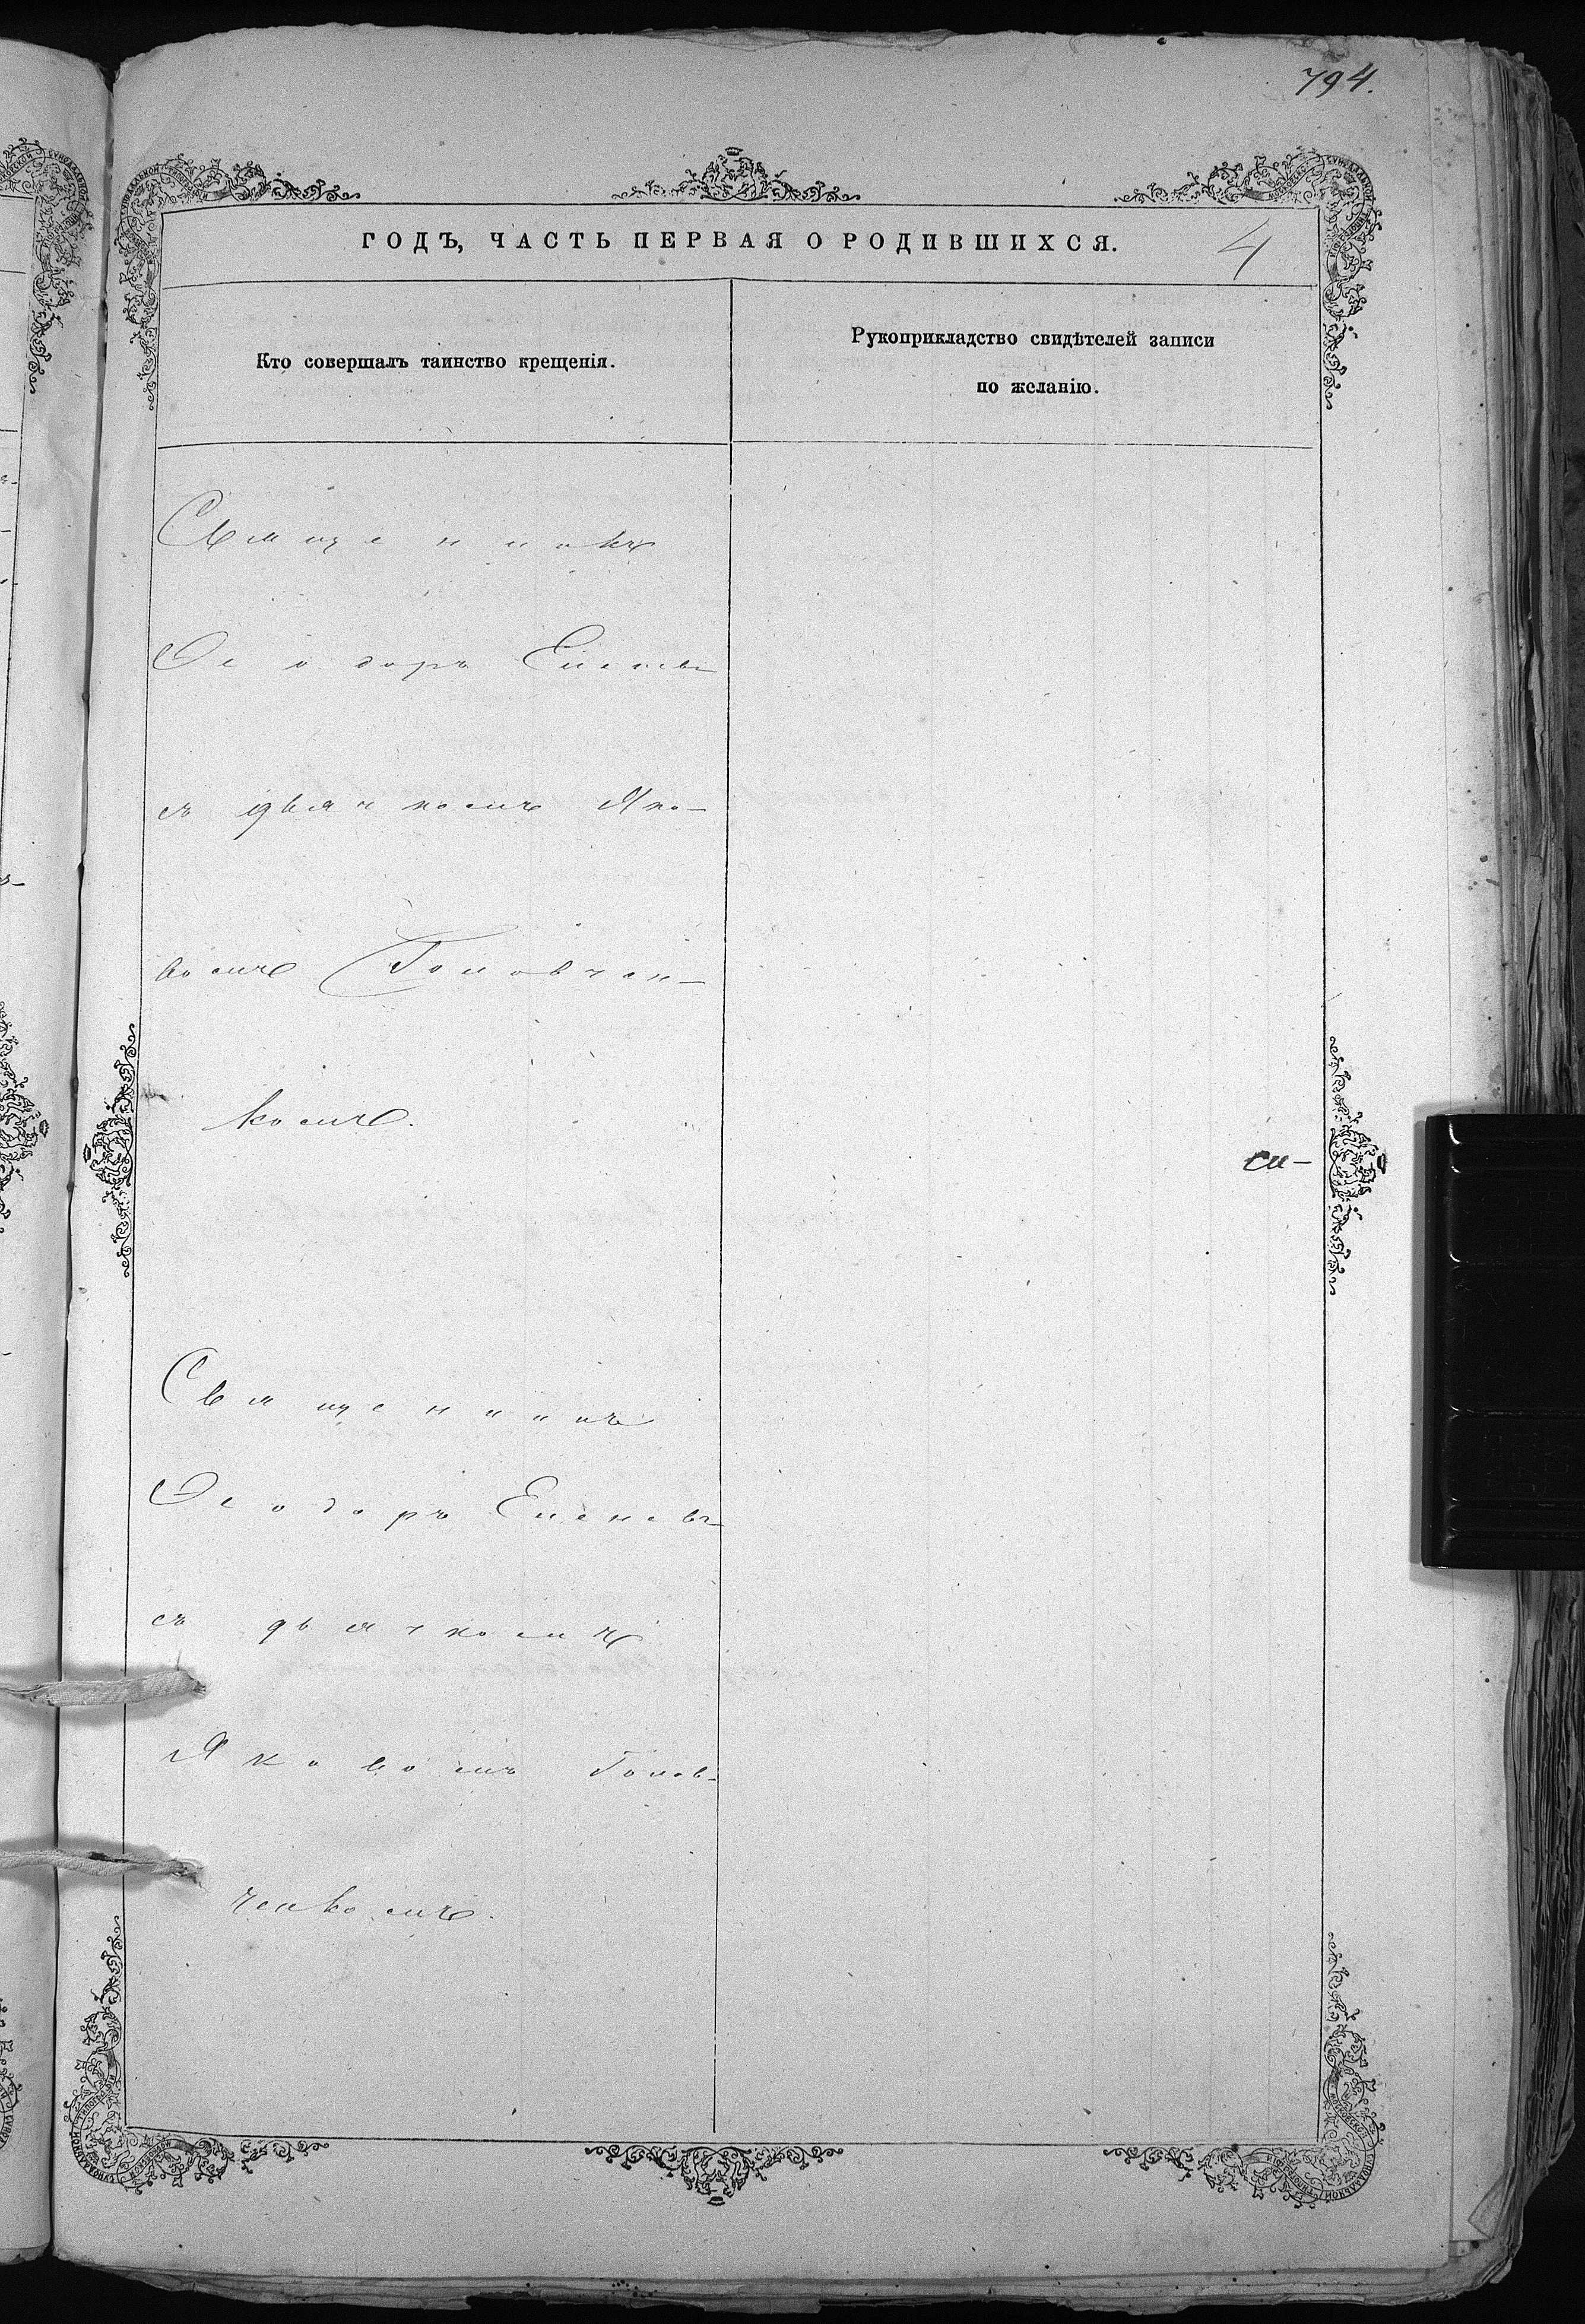 794.
ГОДЪ, ЧАСТЬ ПЕРВАЯ О РОДИВШИХСЯ. 4
Кто совершалъ таинство крещенія.
Рукоприкладство свидѣтелей записи
по желанію.
Священникъ
Ѳеодоръ
съ дьячкомъ Яко-
вомъ Головчен-
комъ.
си-
Священникъ
Ѳеодоръ
съ дьячкомъ
Яковомъ Голов-
ченкомъ.